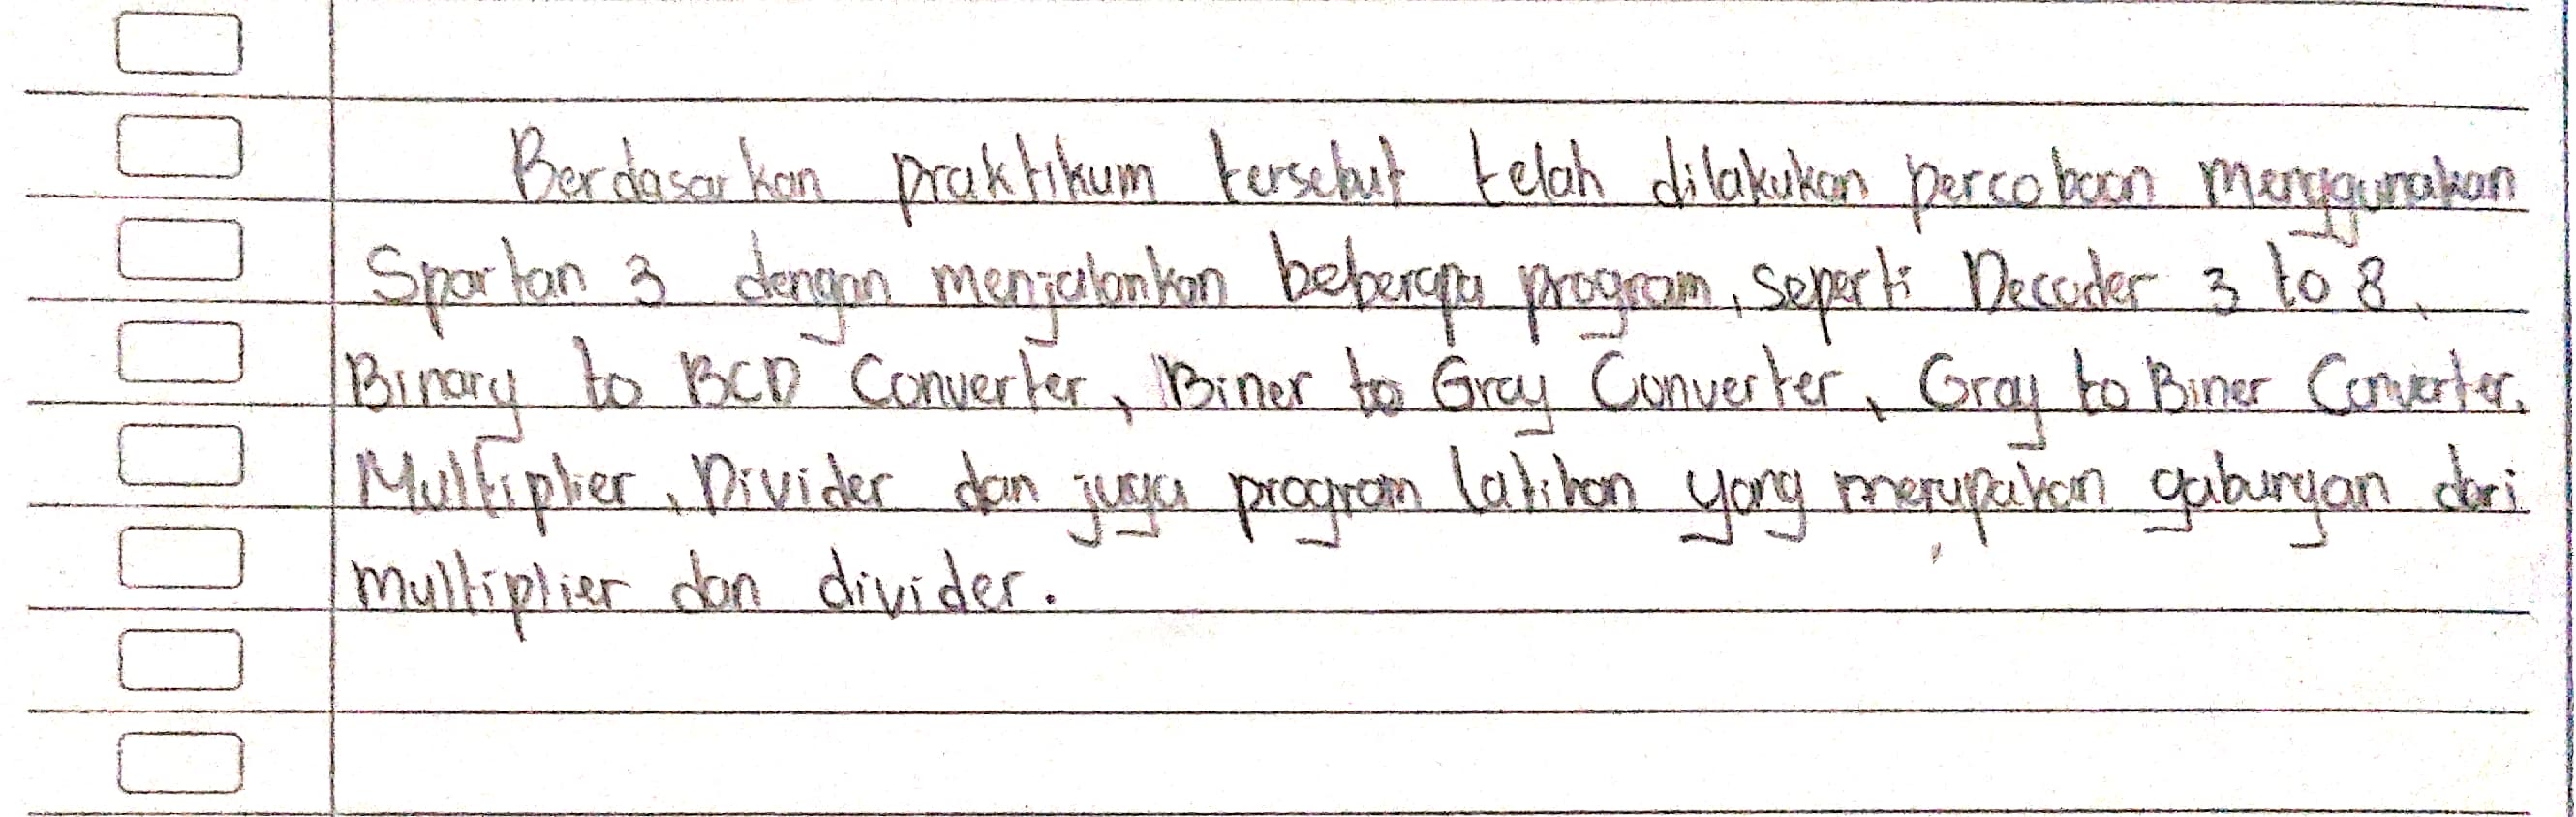 Berdasarkan praktikum tersebut telah dilakukan percobaan menggunakan
Spartan 3 dengan menjalankan beberapa program, seperti Decoder 3 to 8,
Binary to BCD Converter, Biner to Gray Converter, Gray to Biner Converter,
Multiplier, Divider dan juga program latihan yang merupakan gabungan dari
multiplier dan divider.